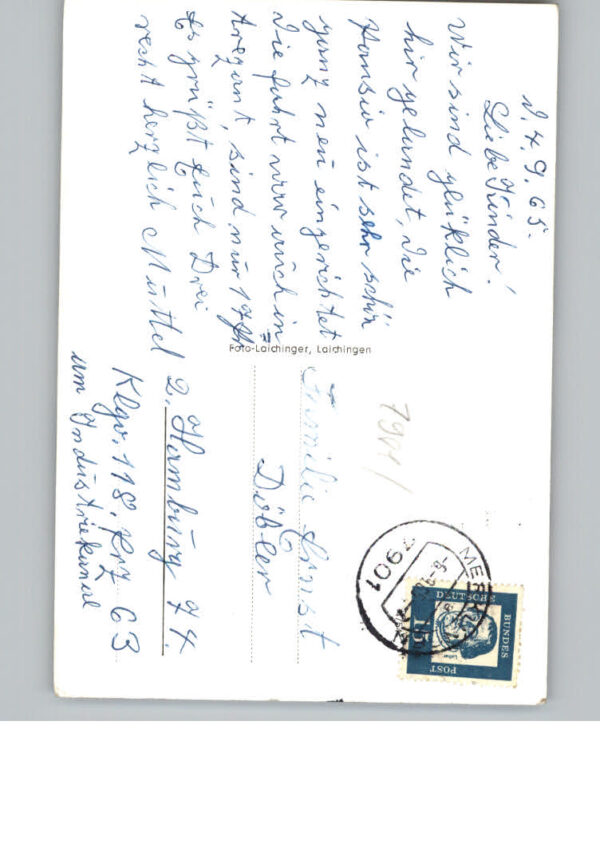 d. 4. 9. 65.
Liebe Kinder!
Wir sind glüklich
hir gelandet, die
Pansiu ist sehr schön
ganz neu eingerichtet
die fahrt war auch in
sind nur 17
Es grüßt Euch Drei
recht herzlich Muttel
Foto-Laichinger, Laichingen
Familie Ernst
Döbler
2. Hamburg 74.
Klgv. 118. Prz 63
am Industriekanal
7901
MERKL
DEUTSCHE
BUNDES
POST
15